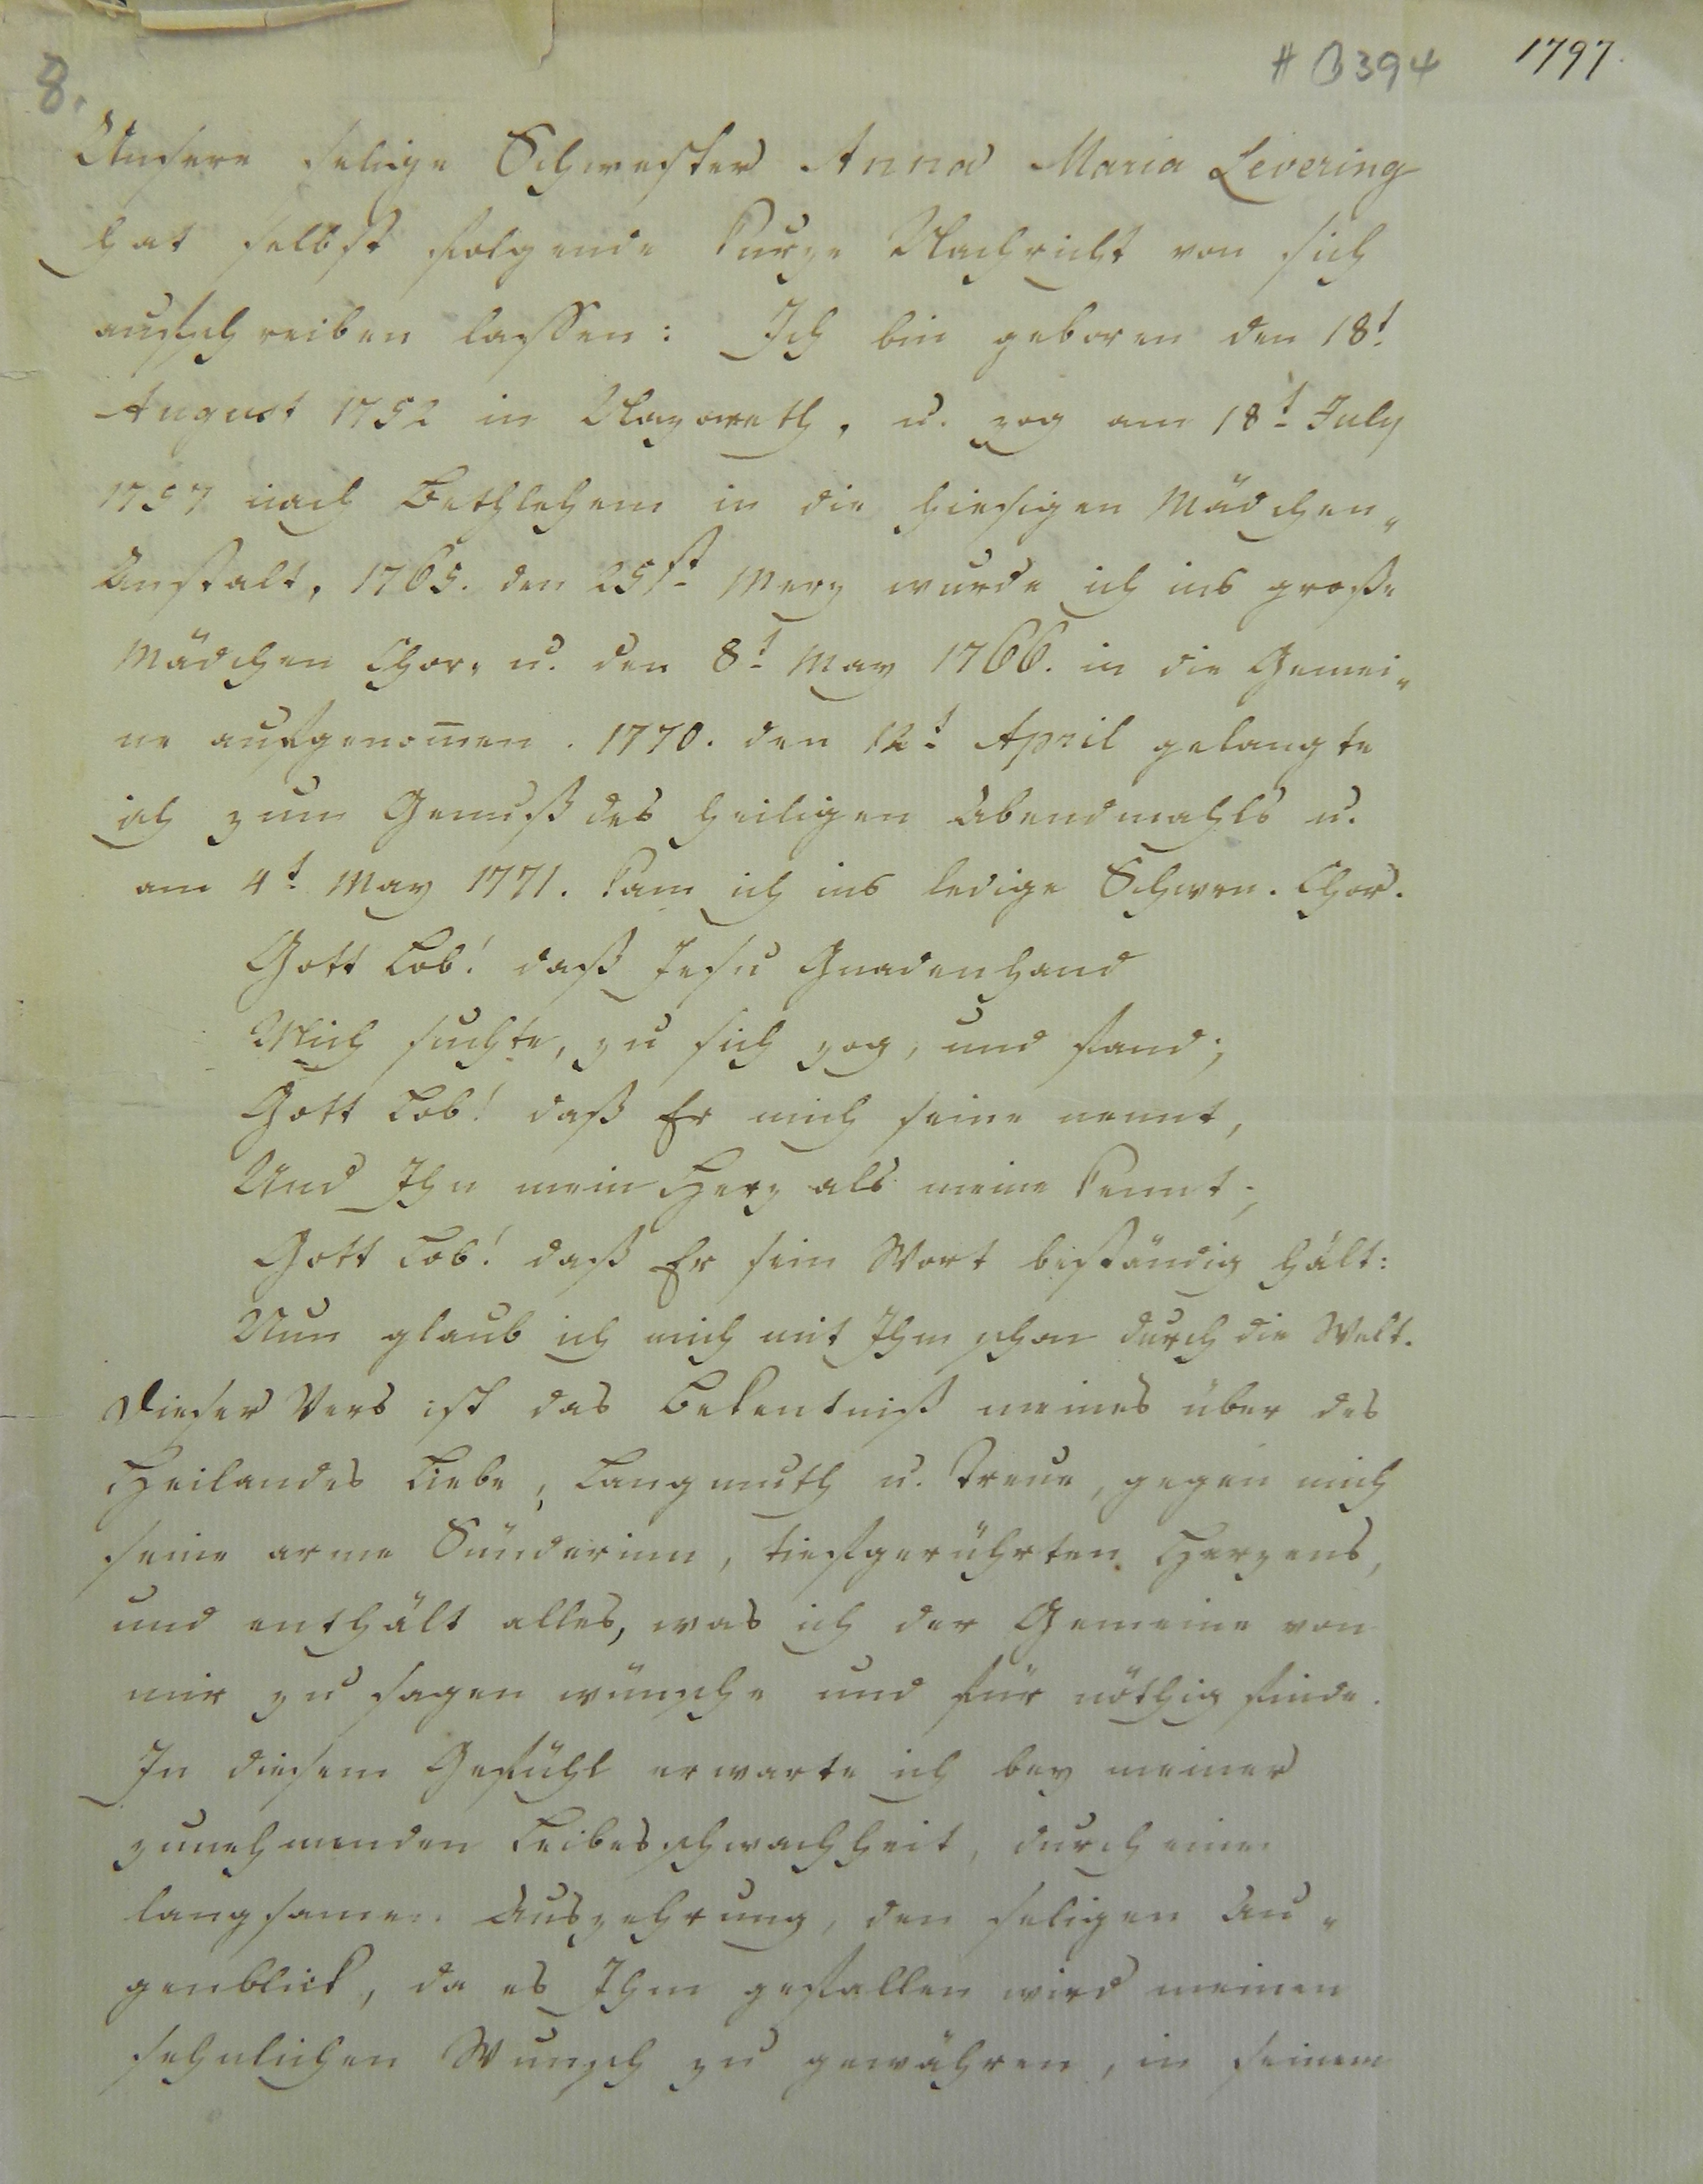 8.
# B394 1797.
Unsere selige Schwester Anna Maria Levering
hat selbst folgende kurze Nachricht von sich
aufschreiben lassen: Ich bin geboren den 18t.
August 1752 in Nazareth, u. zog am 18t. July
1757 nach Bethlehem in die hiesigen Mädchen„
Anstalt, 1765. den 25st. Merz wurde ich ins große
Mädchen Chor, u. den 8t. May 1766. in die Gemei„
ne aufgenom̅en. 1770. den 12t. April gelangte
ich zum Genuß des heiligen Abendmahls u.
am 4t. May 1771. kam ich ins ledige Schwn. Chor.
Gott Lob! daß Jesu Gnadenhand
Mich suchte, zu sich zog, und fand;
Gott Lob! daß Er mich seine nennt,
Und Ihn mein Herz als meine kennt;
Gott Lob! daß Er sein Wort beständig hält:
Nun glaub ich mich mit Ihm schon durch die Welt.
Dieser Vers ist das Bekentniß meines über des
Heilandes Liebe, Langmuth u. Treue, gegen mich
seine arme Sünderinn, tiefgerührten Herzens,
und enthält alles, was ich der Gemeine von
mir zu sagen wünsche und für nöthig finde.
In diesem Gefühl erwarte ich bey meiner
zunehmenden Leibesschwachheit, durch eine
langsame Auszehrung, den seligen Au„
genblick, da es Ihm gefallen wird meinen
sehnlichen Wunsch zu gewähren, in seinem